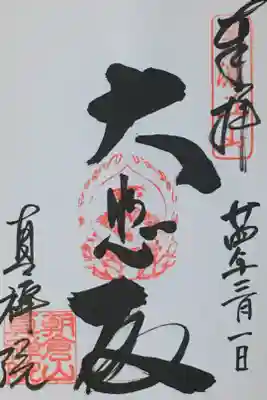 奉拝
廿四年三月一日
大悲殿
真禪院
朝倉山